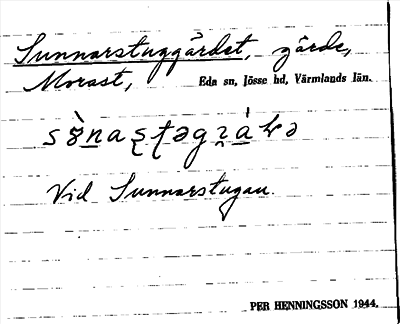 Sunnarstuggärdet, gärde,
Morast, Eda sn, Jösse hd, Värmlands län.
Vid Sunnarstugan.
PER HENNINGSSON 1944.